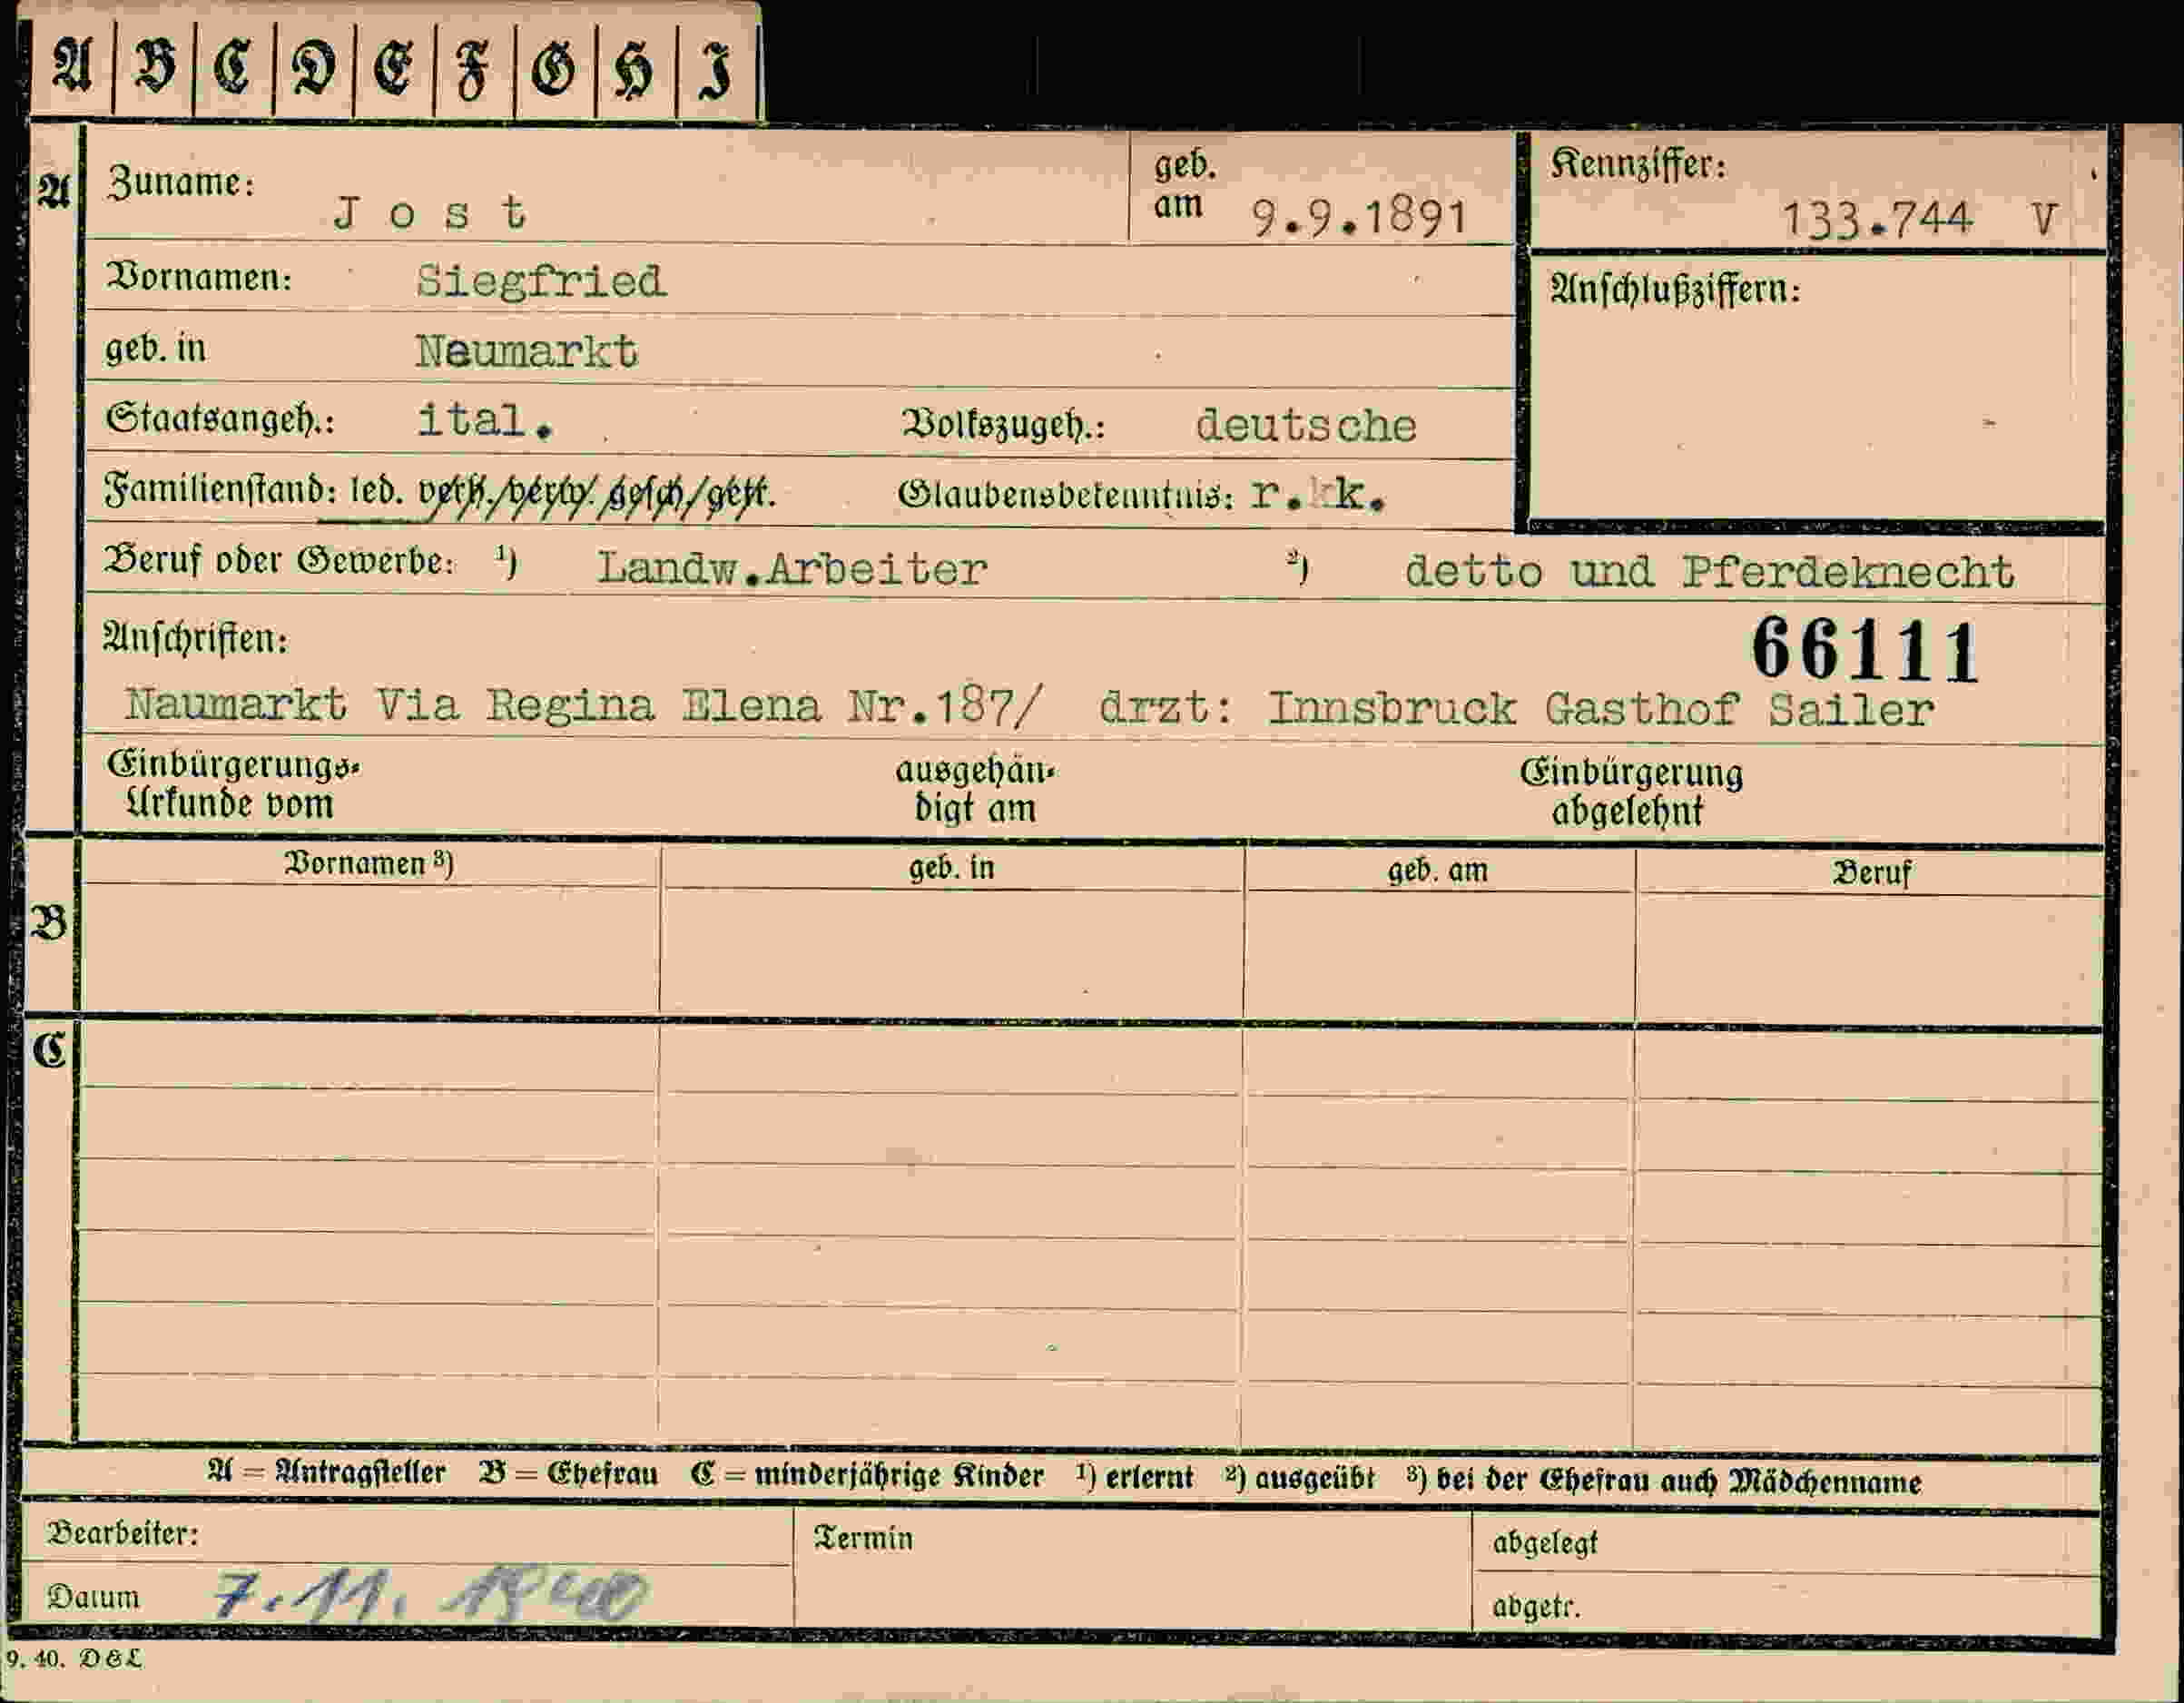 A B C D E F G H I
A Zuname: Jost geb. am 9.9.1891 Kennziffer: 133.744 V
Vornamen: Siegfried Anschlußziffern:
geb. in Neumarkt
Staatsangeh.: ital. Volkszugeh.: deutsche
Familienstand: led. verh./verw./gesch/getr. Glaubensbekenntnis: r. k.
Beruf oder Gewerbe: ¹) Landw.Arbeiter ²) detto und Pferdeknecht
Anschriften: 66111
Naumarkt Via Regina Elena Nr.187/ drzt: Innsbruck Gasthof Sailer
Einbürgerungs- ausgehän- Einbürgerung
Urkunde vom digt am abgelehnt
Vornamen ³) geb. in geb. am Beruf
B
C
A = Antragsteller B = Ehefrau C = minderjährige Kinder ¹) erlernt ²) ausgeübt ³) bei der Ehefrau auch Mädchenname
Bearbeiter: Termin abgelegt
Datum 7.11. 1940 abgetr.
9. 40. D & L